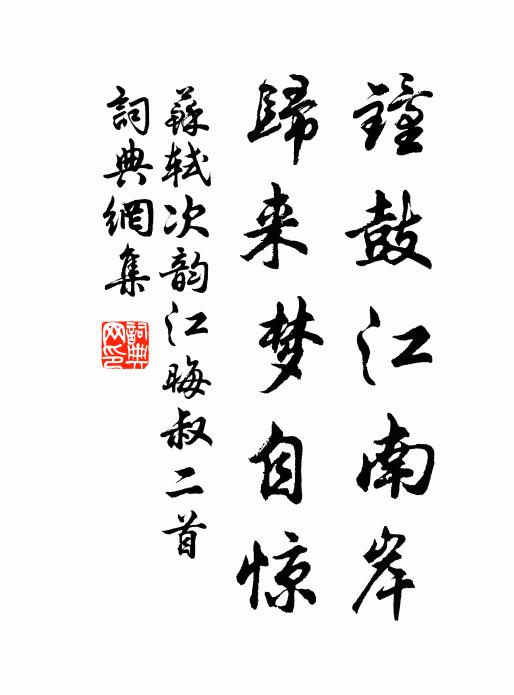 鐘鼓江南岸
歸来梦自惊
蘇軾次韵江晦叔二首
詞典網集
詞典网印